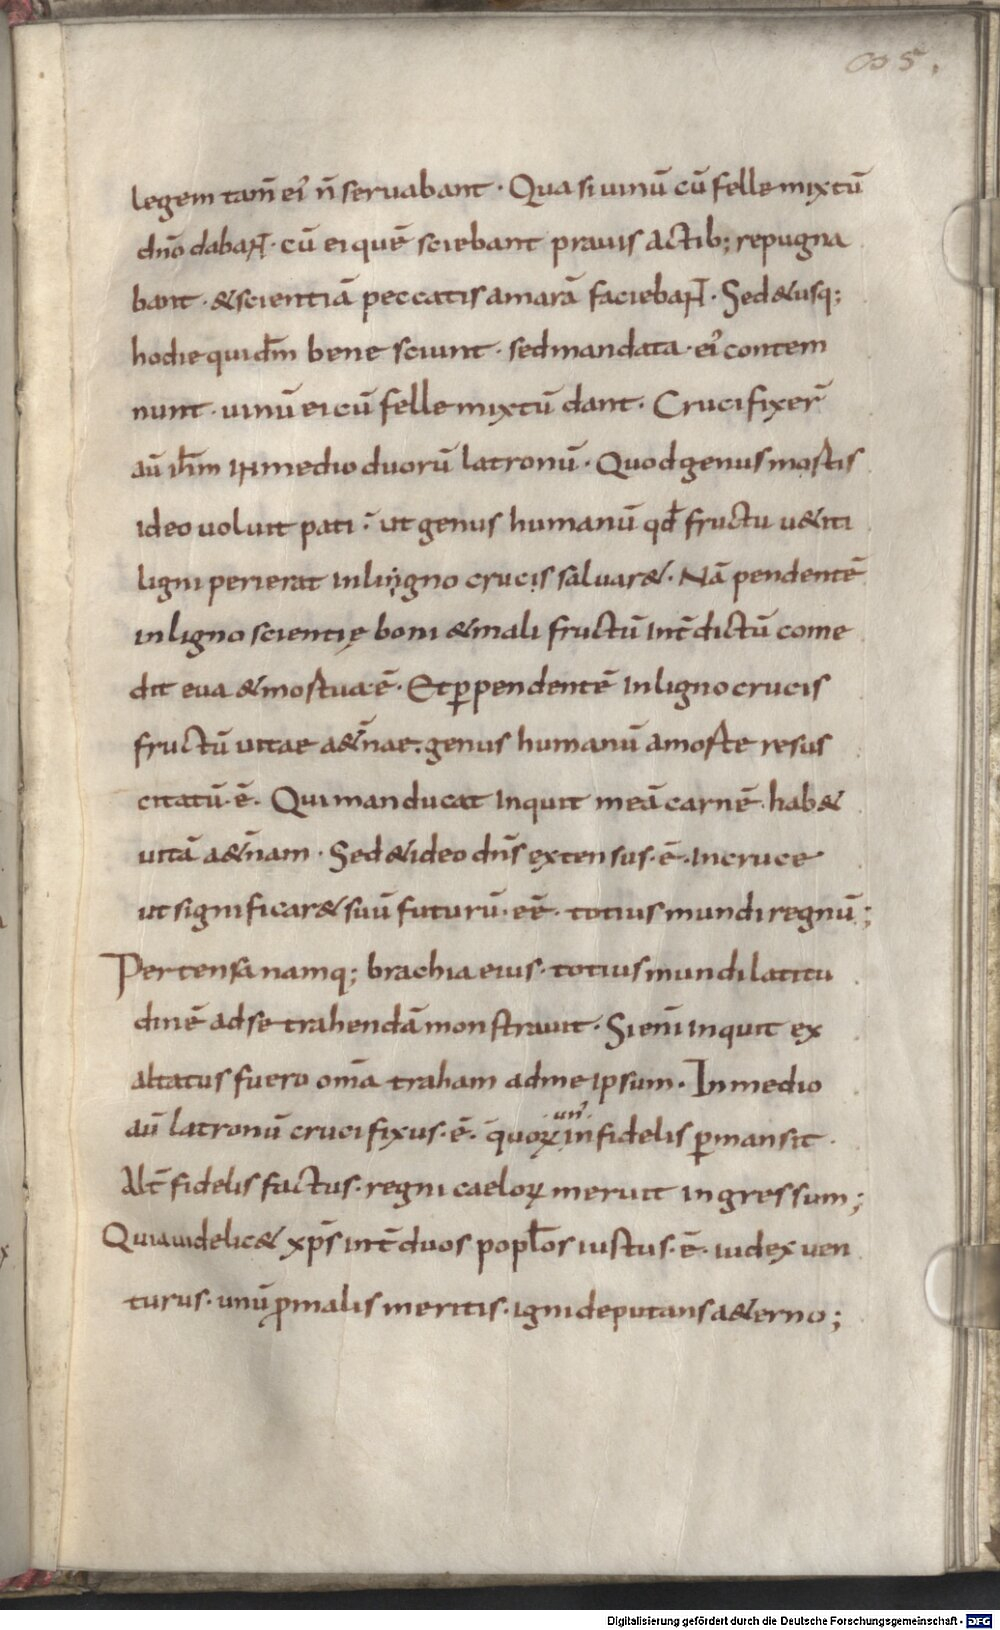 legem tam̄ ei᾽ n̄ seruabant · Quasi uinū cū felle mixtū
dn̄o dabant · cū ei quē sciebant prauis actib; repugna
bant · & scientiā peccatis amarā faciebant · Sed & usq;
hodie quidm̄ bene sciunt · sed mandata · ei᾽ contem
nunt · uinū ei cū felle mixtū dant · Crucifixer̄
aū ih̄m in medio duorū latronū · Quod genus mortis
ideo uoluit pati : ut genus humanū qđ fructu uetiti
ligni perierat in lingno crucis saluar& · Nā pendentē
in ligno scientię boni & mali fructū int̄dictū come
dit eua & mortua · ē · Et p̱ pendentē in ligno crucis
fructū uitae a&n̄ae · genus humanū a morte resus
citatū · ē · Qui manducat inquit meā carnē hab&
uitā a&n̄am · Sed & ideo dn̄s extensus · ē · in cruce
ut significar& suū futurū · eē · totius mundi regnū ;
Per tensa namq; brachia eius · totius mundi latitu
dinē ad se trahendā monstrauit · Si enī inquit ex
altatus fuero om̄a traham ad me ipsum · In medio
aū latronū crucifixus · ē · quoꝝ · un᾽ · infidelis ꝑmansit ·
Alt̄ fidelis factus · regni caeloꝝ meruit ingressum ;
Quia uidelic& xp̄s int̄ duos popl̄os iustus · ē · iudex uen
turus · unū ꝓ malis meritis · igni deputans a&erno ;
Digitalisierung gefördert durch die Deutsche Forschungsgemeinschaft - DFG